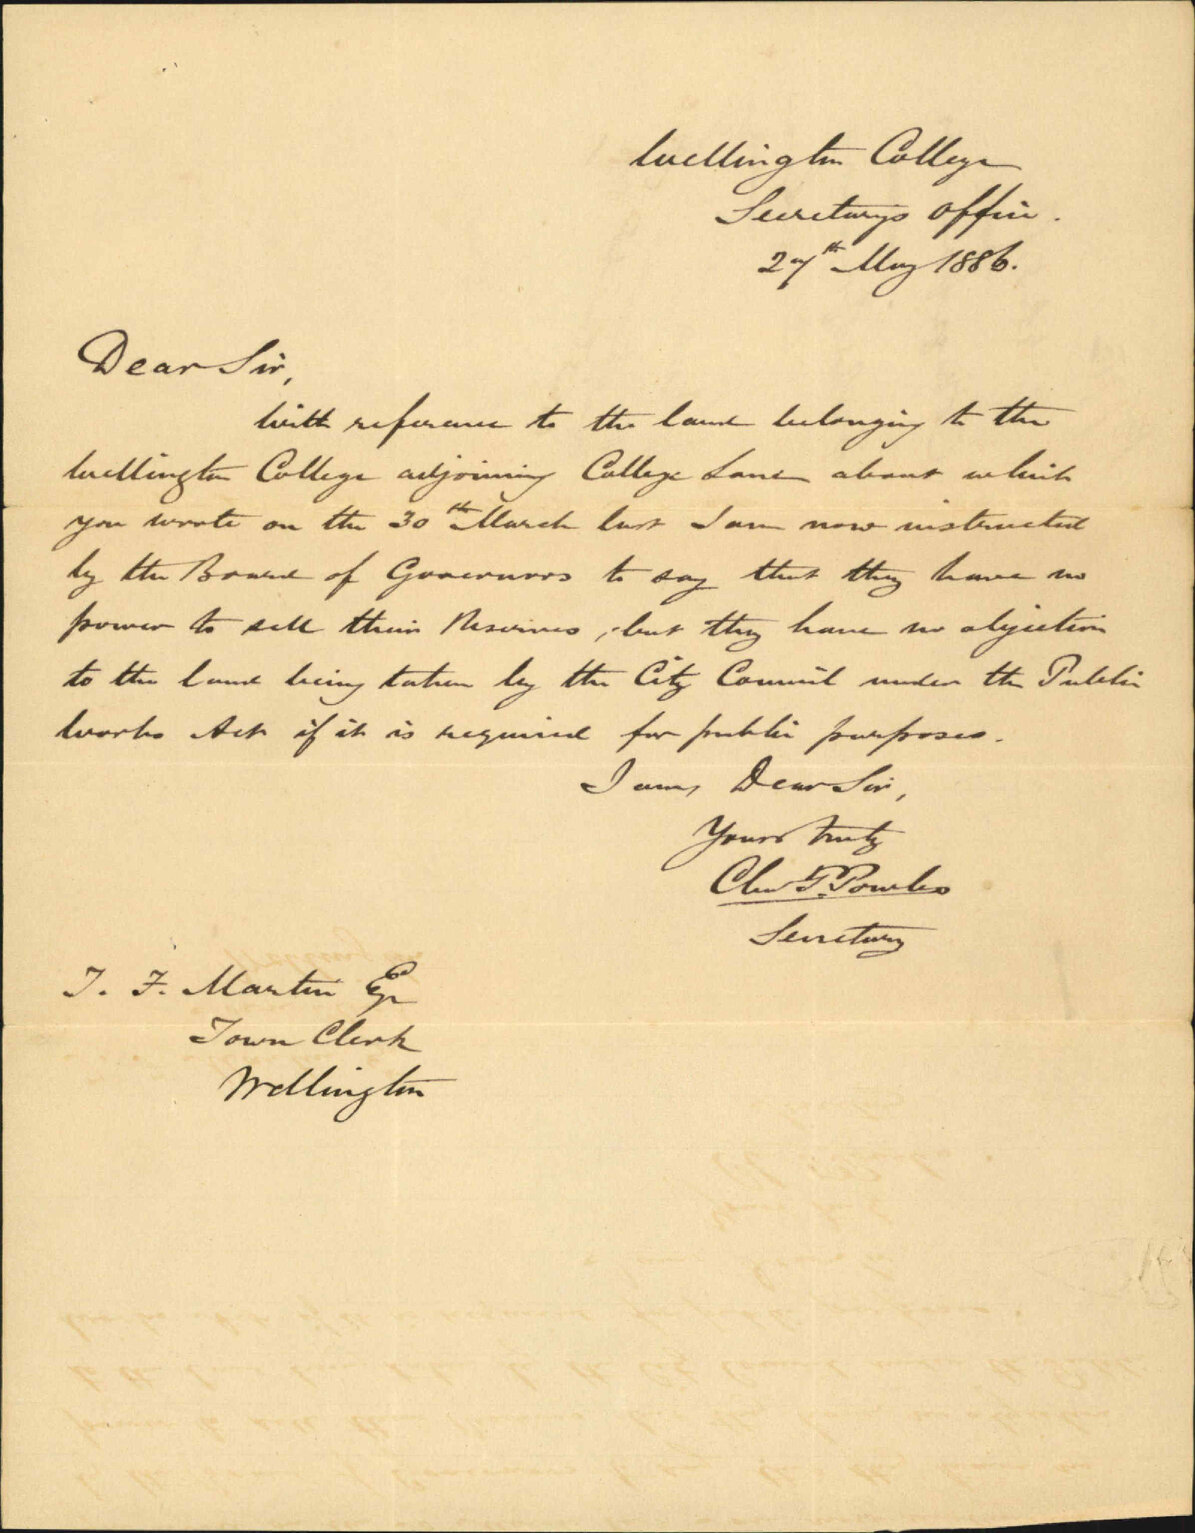 Wellington College
Secretarys Office.
27th May 1886.
Dear Sir,
With reference to the land belonging to the
Wellington College adjoining College Lane about which
you wrote on the 30th March last I am now instructed
by the Board of Governors to say that they have no
power to sell their Reserves, but they have no objection
to the land being taken by the City Council under the Public
Works Act if it is required for public purposes.
I am, Dear Sir,
Yours truly
Chas P. Powles
Secretary
J. F. Martin Esqr
Town Clerk
Wellington